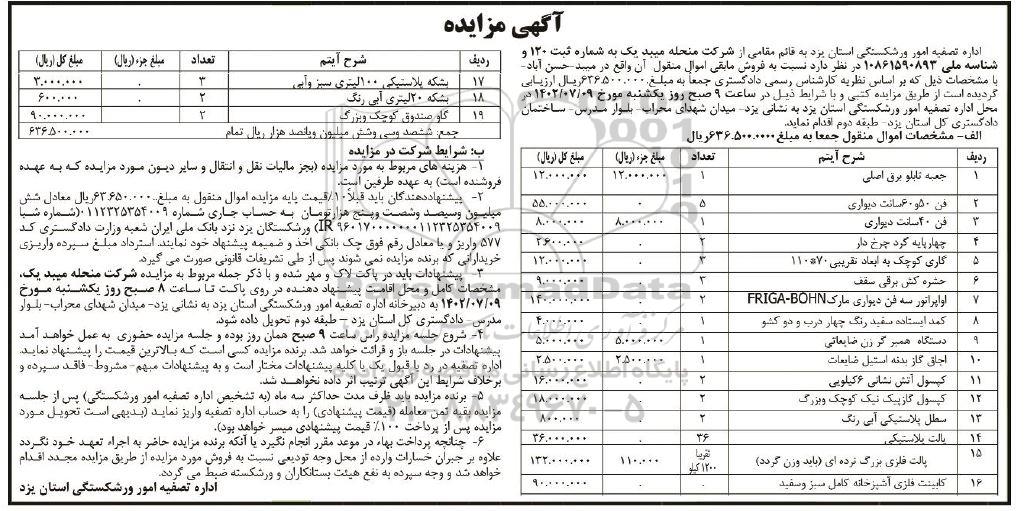 آگهی مزایده
اداره تصفیه امور ورشکستگی استان یزد به قائم مقامی از شرکت منحله میبد یک به شماره ثبت ۱۲۰ و
شناسه ملی ۱۰۸۶۱۵۹۰۸۹۳ در نظر دارد نسبت به فروش مابقی اموال منقول آن واقع در میبد-حسن آباد-
با مشخصات ذیل که بر اساس نظریه کارشناس رسمی دادگستری جمعاً به مبلغ ۶۳۶.۵۰۰.۰۰۰ریال ارزیابی
گردیده است از طریق مزایده کتبی و با شرایط ذیل در ساعت ۹ صبح روز یکشنبه مورخ ۱۴۰۲/۰۷/۰۹ در
محل اداره تصفیه امور ورشکستگی استان یزد به نشانی یزد- میدان شهدای محراب- بلوار مدرس- ساختمان
دادگستری کل استان یزد- طبقه دوم اقدام نماید.
الف- مشخصات اموال منقول جمعا به مبلغ ۶۳۶.۵۰۰.۰۰۰ریال
ردیف شرح آیتم تعداد مبلغ جزء (ریال) مبلغ کل (ریال)
۱ جعبه تابلو برق اصلی ۱ ۱۲.۰۰۰.۰۰۰ ۱۲.۰۰۰.۰۰۰
۲ فن ۵۰و۶۰سانت دیواری ۵ . ۵۵.۰۰۰.۰۰۰
۳ فن ۴۰سانت دیواری ۱ ۸.۰۰۰.۰۰۰ ۸.۰۰۰.۰۰۰
۴ چهارپایه گرد چرخ دار ۲ . ۲.۶۰۰.۰۰۰
۵ گاری کوچک به ابعاد تقریبی ۷۰*۱۱۰ ۳ . ۱۲.۰۰۰.۰۰۰
۶ حشره کش برقی سقف ۳ . ۹.۰۰۰.۰۰۰
۷ اواپراتور سه فن دیواری مارک FRIGA-BOHN ۲ . ۱۴۰.۰۰۰.۰۰۰
۸ کمد ایستاده سفید رنگ چهار درب و دو کشو ۱ . ۴.۰۰۰.۰۰۰
۹ دستگاه همبر گر زن ضایعاتی ۱ ۵.۰۰۰.۰۰۰ ۵.۰۰۰.۰۰۰
۱۰ اجاق گاز بدنه استیل ضایعات ۱ ۲.۵۰۰.۰۰۰ ۲.۵۰۰.۰۰۰
۱۱ کپسول آتش نشانی ۶کیلویی ۲ . ۱۶.۰۰۰.۰۰۰
۱۲ کپسول گازپیک نیک کوچک وبزرگ ۲ . ۱۸.۰۰۰.۰۰۰
۱۳ سطل پلاستیکی آبی رنگ ۲ . ۸۰۰.۰۰۰
۱۴ پالت پلاستیکی ۳۶ . ۳۶.۰۰۰.۰۰۰
۱۵ پالت فلزی بزرگ نرده ای (باید وزن گردد) تقریبا ۱۲۰۰کیلو ۱۱۰.۰۰۰ ۱۳۲.۰۰۰.۰۰۰
۱۶ کابینت فلزی آشپزخانه کامل سبز وسفید . . ۹۰.۰۰۰.۰۰۰
ردیف شرح آیتم تعداد مبلغ جزء (ریال) مبلغ کل (ریال)
۱۷ بشکه پلاستیکی ۱۰۰لیتری سبز وآبی ۳ . ۳.۰۰۰.۰۰۰
۱۸ بشکه ۲۰لیتری آبی رنگ ۲ . ۶۰۰.۰۰۰
۱۹ گاو صندوق کوچک وبزرگ ۲ ۹۰.۰۰۰.۰۰۰
جمع: ششصد وسی وشش میلیون وپانصد هزار ریال تمام ۶۳۶.۵۰۰.۰۰۰
ب: شرایط شرکت در مزایده
۱- هزینه های مربوط به مورد مزایده (بجز مالیات نقل و انتقال و سایر دیون مورد مزایده که به عهده
فروشنده است) به عهده طرفین است.
۲- پیشنهاددهندگان باید قبلاً ۱۰٪قیمت پایه مزایده اموال منقول به مبلغ ۶۳.۶۵۰.۰۰۰ریال معادل شش
میلیون وسیصد وشصت وپنج هزارتومان به حساب جاری شماره ۰۱۱۲۳۲۵۳۵۴۰۰۹ (شماره شبا
IR ۹۶۰۱۷۰۰۰۰۰۰۰۱۱۲۳۲۵۳۵۴۰۰۹) ورشکستگان یزد نزد بانک ملی ایران شعبه وزارت دادگستری کد
۵۷۷ واریز و یا معادل رقم فوق چک بانکی اخذ و ضمیمه پیشنهاد خود نمایند. استرداد مبلغ سپرده واریزی
خریدارانی که برنده مزایده نمی شوند پس از طی تشریفات قانونی صورت می گیرد.
۳- پیشنهادات باید در پاکت لاک و مهر شده و با ذکر جمله مربوط به مزایده شرکت منحله میبد یک،
مشخصات کامل و محل اقامت پیشنهاد دهنده در روی پاکت تا ساعت ۸ صبح روز یکشنبه مورخ
۱۴۰۲/۰۷/۰۹ به دبیرخانه اداره تصفیه امور ورشکستگی استان یزد به نشانی یزد- میدان شهدای محراب-بلوار
مدرس- دادگستری کل استان یزد – طبقه دوم تحویل داده شود.
۴- شروع جلسه مزایده راس ساعت ۹ صبح همان روز بوده و جلسه مزایده حضوری به عمل خواهد آمد
پیشنهادات در جلسه باز و قرائت خواهد شد. برنده مزایده کسی است که بالاترین قیمت را پیشنهاد نماید.
اداره تصفیه در رد یا قبول یک یا کلیه پیشنهادات مختار است و به پیشنهادات مبهم-مشروط-فاقد سپرده و
برخلاف شرایط این آگهی ترتیب اثر داده نخواهد شد.
۵- برنده مزایده باید ظرف مدت حداکثر سه ماه (به تشخیص اداره تصفیه امور ورشکستگی) پس از جلسه
مزایده بقیه ثمن معامله (قیمت پیشنهادی) را به حساب اداره تصفیه واریز نماید (بدیهی است تحویل مورد
مزایده پس از پرداخت ۱۰۰٪ قیمت پیشنهادی میسر خواهد بود).
۶- چنانچه پرداخت بهاء در موعد مقرر انجام نگیرد یا آنکه برنده مزایده حاضر به اجراء تعهد خود نگردد
علاوه بر جبران خسارات وارده از محل وجه تودیعی نسبت به فروش مورد مزایده از طریق مزایده مجدد اقدام
خواهد شد و وجه سپرده به نفع هیئت بستانکاران و ورشکسته ضبط می گردد.
اداره تصفیه امور ورشکستگی استان یزد